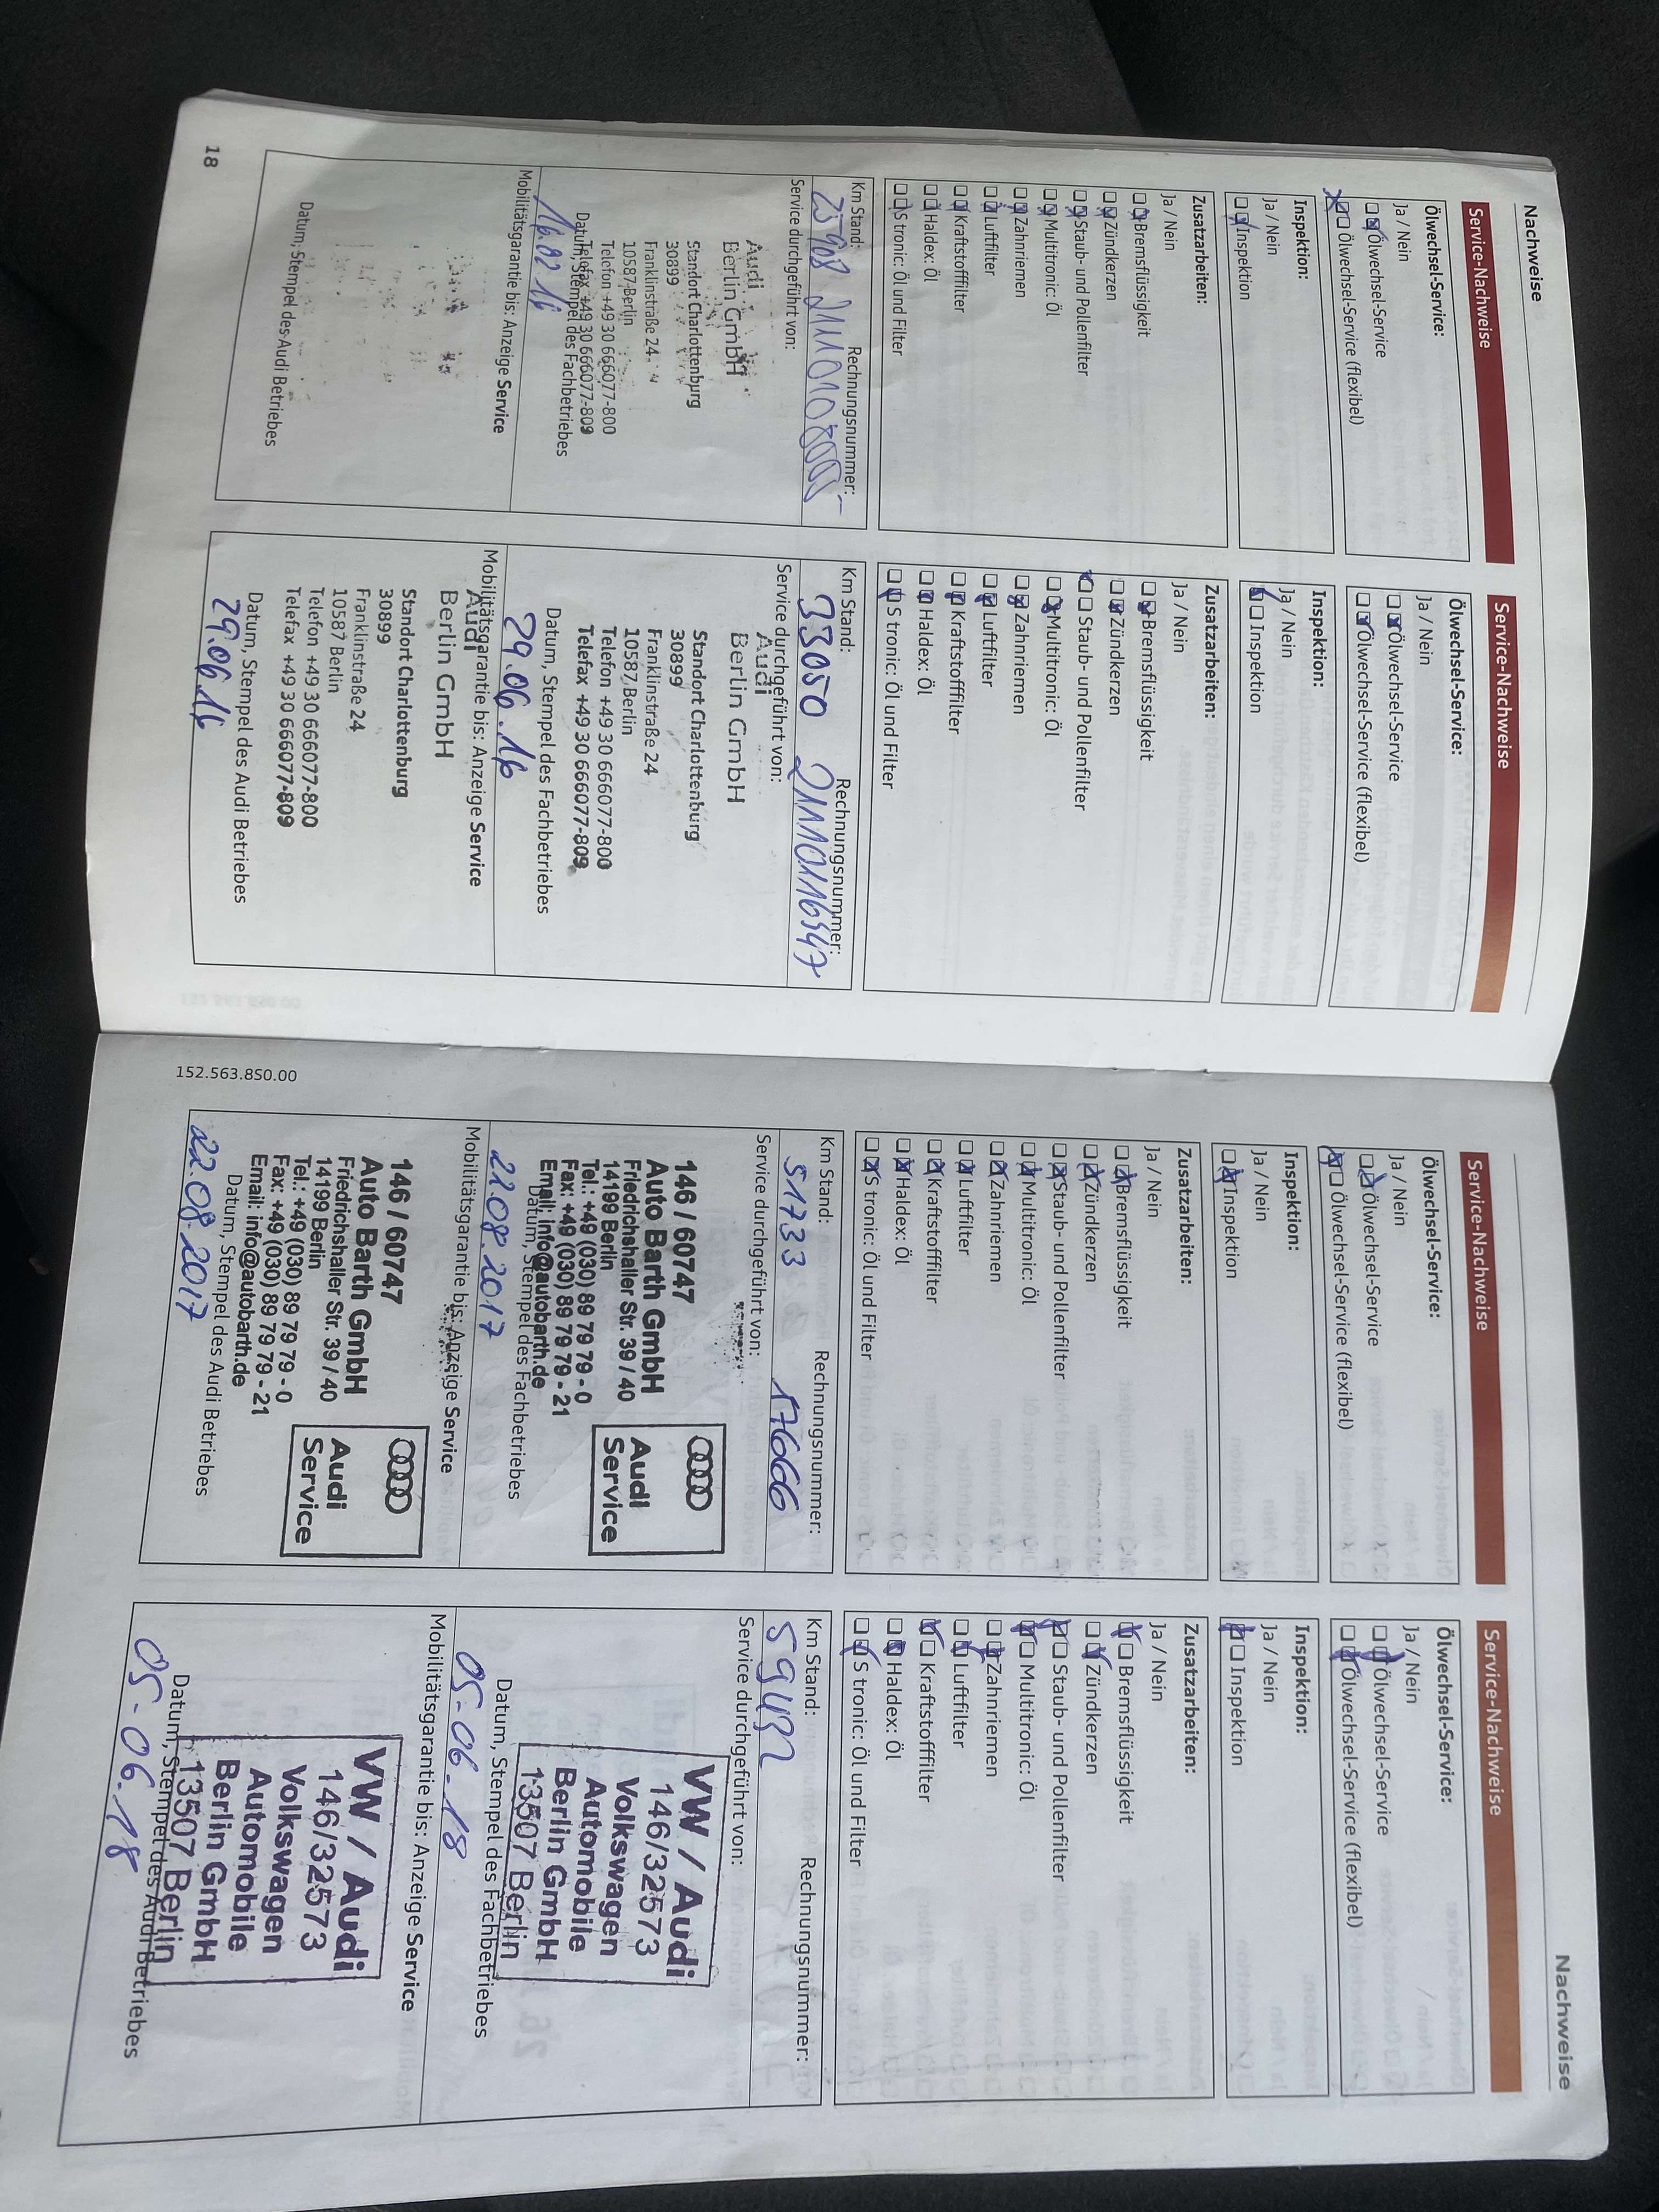 Nachweise
Service-Nachweise
Ölwechsel-Service:
Ja / Nein
Ölwechsel-Service
Ölwechsel-Service (flexibel)
Inspektion:
Ja / Nein
Inspektion
Zusatzarbeiten:
Ja / Nein
Bremsflüssigkeit
Zündkerzen
Staub- und Pollenfilter
Multitronic: Öl
Zahnriemen
Luftfilter
Kraftstofffilter
Haldex: Öl
S tronic: Öl und Filter
Km Stand: Rechnungsnummer:
25908
Service durchgeführt von:
Audi
Berlin GmbH
Standort Charlottenburg
30899
Franklinstraße 24
10587 Berlin
Telefon +49 30 666077-800
Telefax +49 30 666077-809
Datum, Stempel des Fachbetriebes
16.02.16
Mobilitätsgarantie bis: Anzeige Service
Datum, Stempel des Audi Betriebes
18
Service-Nachweise
Ölwechsel-Service:
Ja / Nein
Ölwechsel-Service
Ölwechsel-Service (flexibel)
Inspektion:
Ja / Nein
Inspektion
Zusatzarbeiten:
Ja / Nein
Bremsflüssigkeit
Zündkerzen
Staub- und Pollenfilter
Multitronic: Öl
Zahnriemen
Luftfilter
Kraftstofffilter
Haldex: Öl
S tronic: Öl und Filter
Km Stand: Rechnungsnummer:
33050 21110116947
Service durchgeführt von:
Audi
Berlin GmbH
Standort Charlottenburg
30899
Franklinstraße 24
10587 Berlin
Telefon +49 30 666077-800
Telefax +49 30 666077-809
Datum, Stempel des Fachbetriebes
29.06.16
Mobilitätsgarantie bis: Anzeige Service
Audi
Berlin GmbH
Standort Charlottenburg
30899
Franklinstraße 24
10587 Berlin
Telefon +49 30 666077-800
Telefax +49 30 666077-809
Datum, Stempel des Audi Betriebes
29.06.16
Nachweise
Service-Nachweise
Ölwechsel-Service:
Ja / Nein
Ölwechsel-Service
Ölwechsel-Service (flexibel)
Inspektion:
Ja / Nein
Inspektion
Zusatzarbeiten:
Ja / Nein
Bremsflüssigkeit
Zündkerzen
Staub- und Pollenfilter
Multitronic: Öl
Zahnriemen
Luftfilter
Kraftstofffilter
Haldex: Öl
S tronic: Öl und Filter
Km Stand: Rechnungsnummer:
51733 17666
Service durchgeführt von:
146 / 60747
Auto Barth GmbH
Friedrichshaller Str. 39 / 40
14199 Berlin
Tel.: +49 (030) 89 79 79 - 0
Fax: +49 (030) 89 79 79 - 21
Email: info@autobarth.de
Audi
Service
Datum, Stempel des Fachbetriebes
22.08.2017
Mobilitätsgarantie bis: Anzeige Service
146 / 60747
Auto Barth GmbH
Friedrichshaller Str. 39 / 40
14199 Berlin
Tel.: +49 (030) 89 79 79 - 0
Fax: +49 (030) 89 79 79 - 21
Email: info@autobarth.de
Audi
Service
Datum, Stempel des Audi Betriebes
22.08.2017
152.563.850.00
Service-Nachweise
Ölwechsel-Service:
Ja / Nein
Ölwechsel-Service
Ölwechsel-Service (flexibel)
Inspektion:
Ja / Nein
Inspektion
Zusatzarbeiten:
Ja / Nein
Bremsflüssigkeit
Zündkerzen
Staub- und Pollenfilter
Multitronic: Öl
Zahnriemen
Luftfilter
Kraftstofffilter
Haldex: Öl
S tronic: Öl und Filter
Km Stand: Rechnungsnummer:
59432
Service durchgeführt von:
VW / Audi
146/32573
Volkswagen
Automobile
Berlin GmbH
13507 Berlin
Datum, Stempel des Fachbetriebes
05-06.18
Mobilitätsgarantie bis: Anzeige Service
VW / Audi
146/32573
Volkswagen
Automobile
Berlin GmbH
13507 Berlin
Datum, Stempel des Audi Betriebes
05-06.18